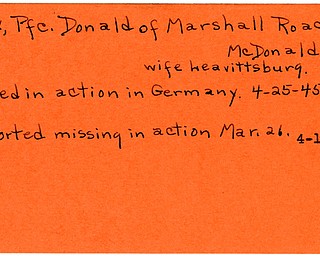 , Pfc. Donald of Marshall Road
McDonald
wife Leavittsburg.
ed in action in Germany. 4-25-45
orted missing in action Mar. 26.
4-1